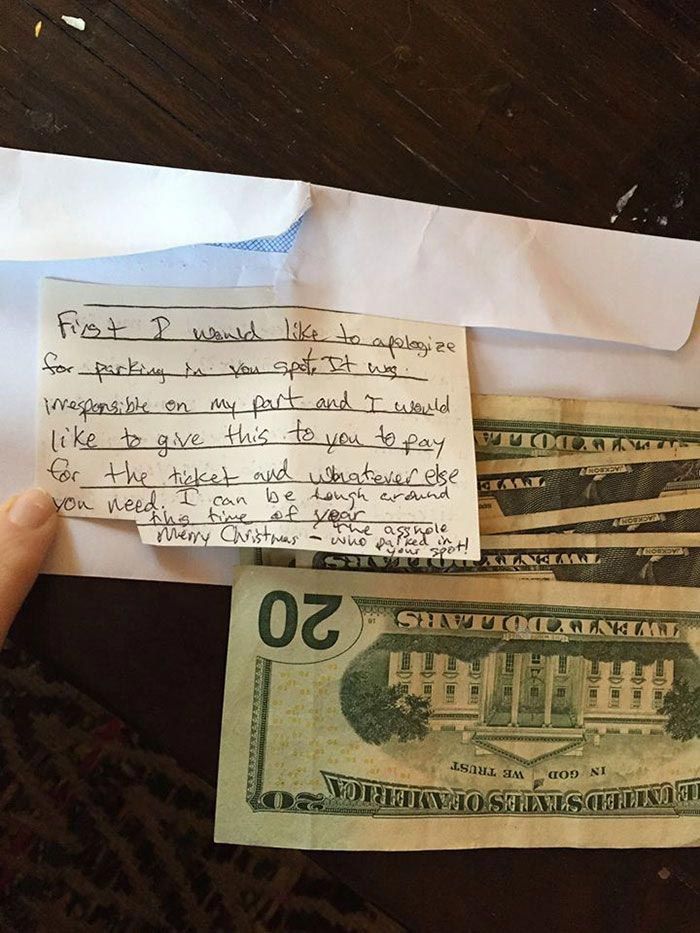 First I would like to apologize
for parking in you spot. It was
irresponsible on my part and I would
like to give this to you to pay
for the ticket and whatever else
you need. I can be tough around
this time of year
Merry Christmas - The asshole
who parked in
your spot!
TWENTY DOLLARS
JACKSON
JACKSON
JACKSON
20
TWENTY DOLLARS
IN GOD WE TRUST
THE UNITED STATES OF AMERICA
20